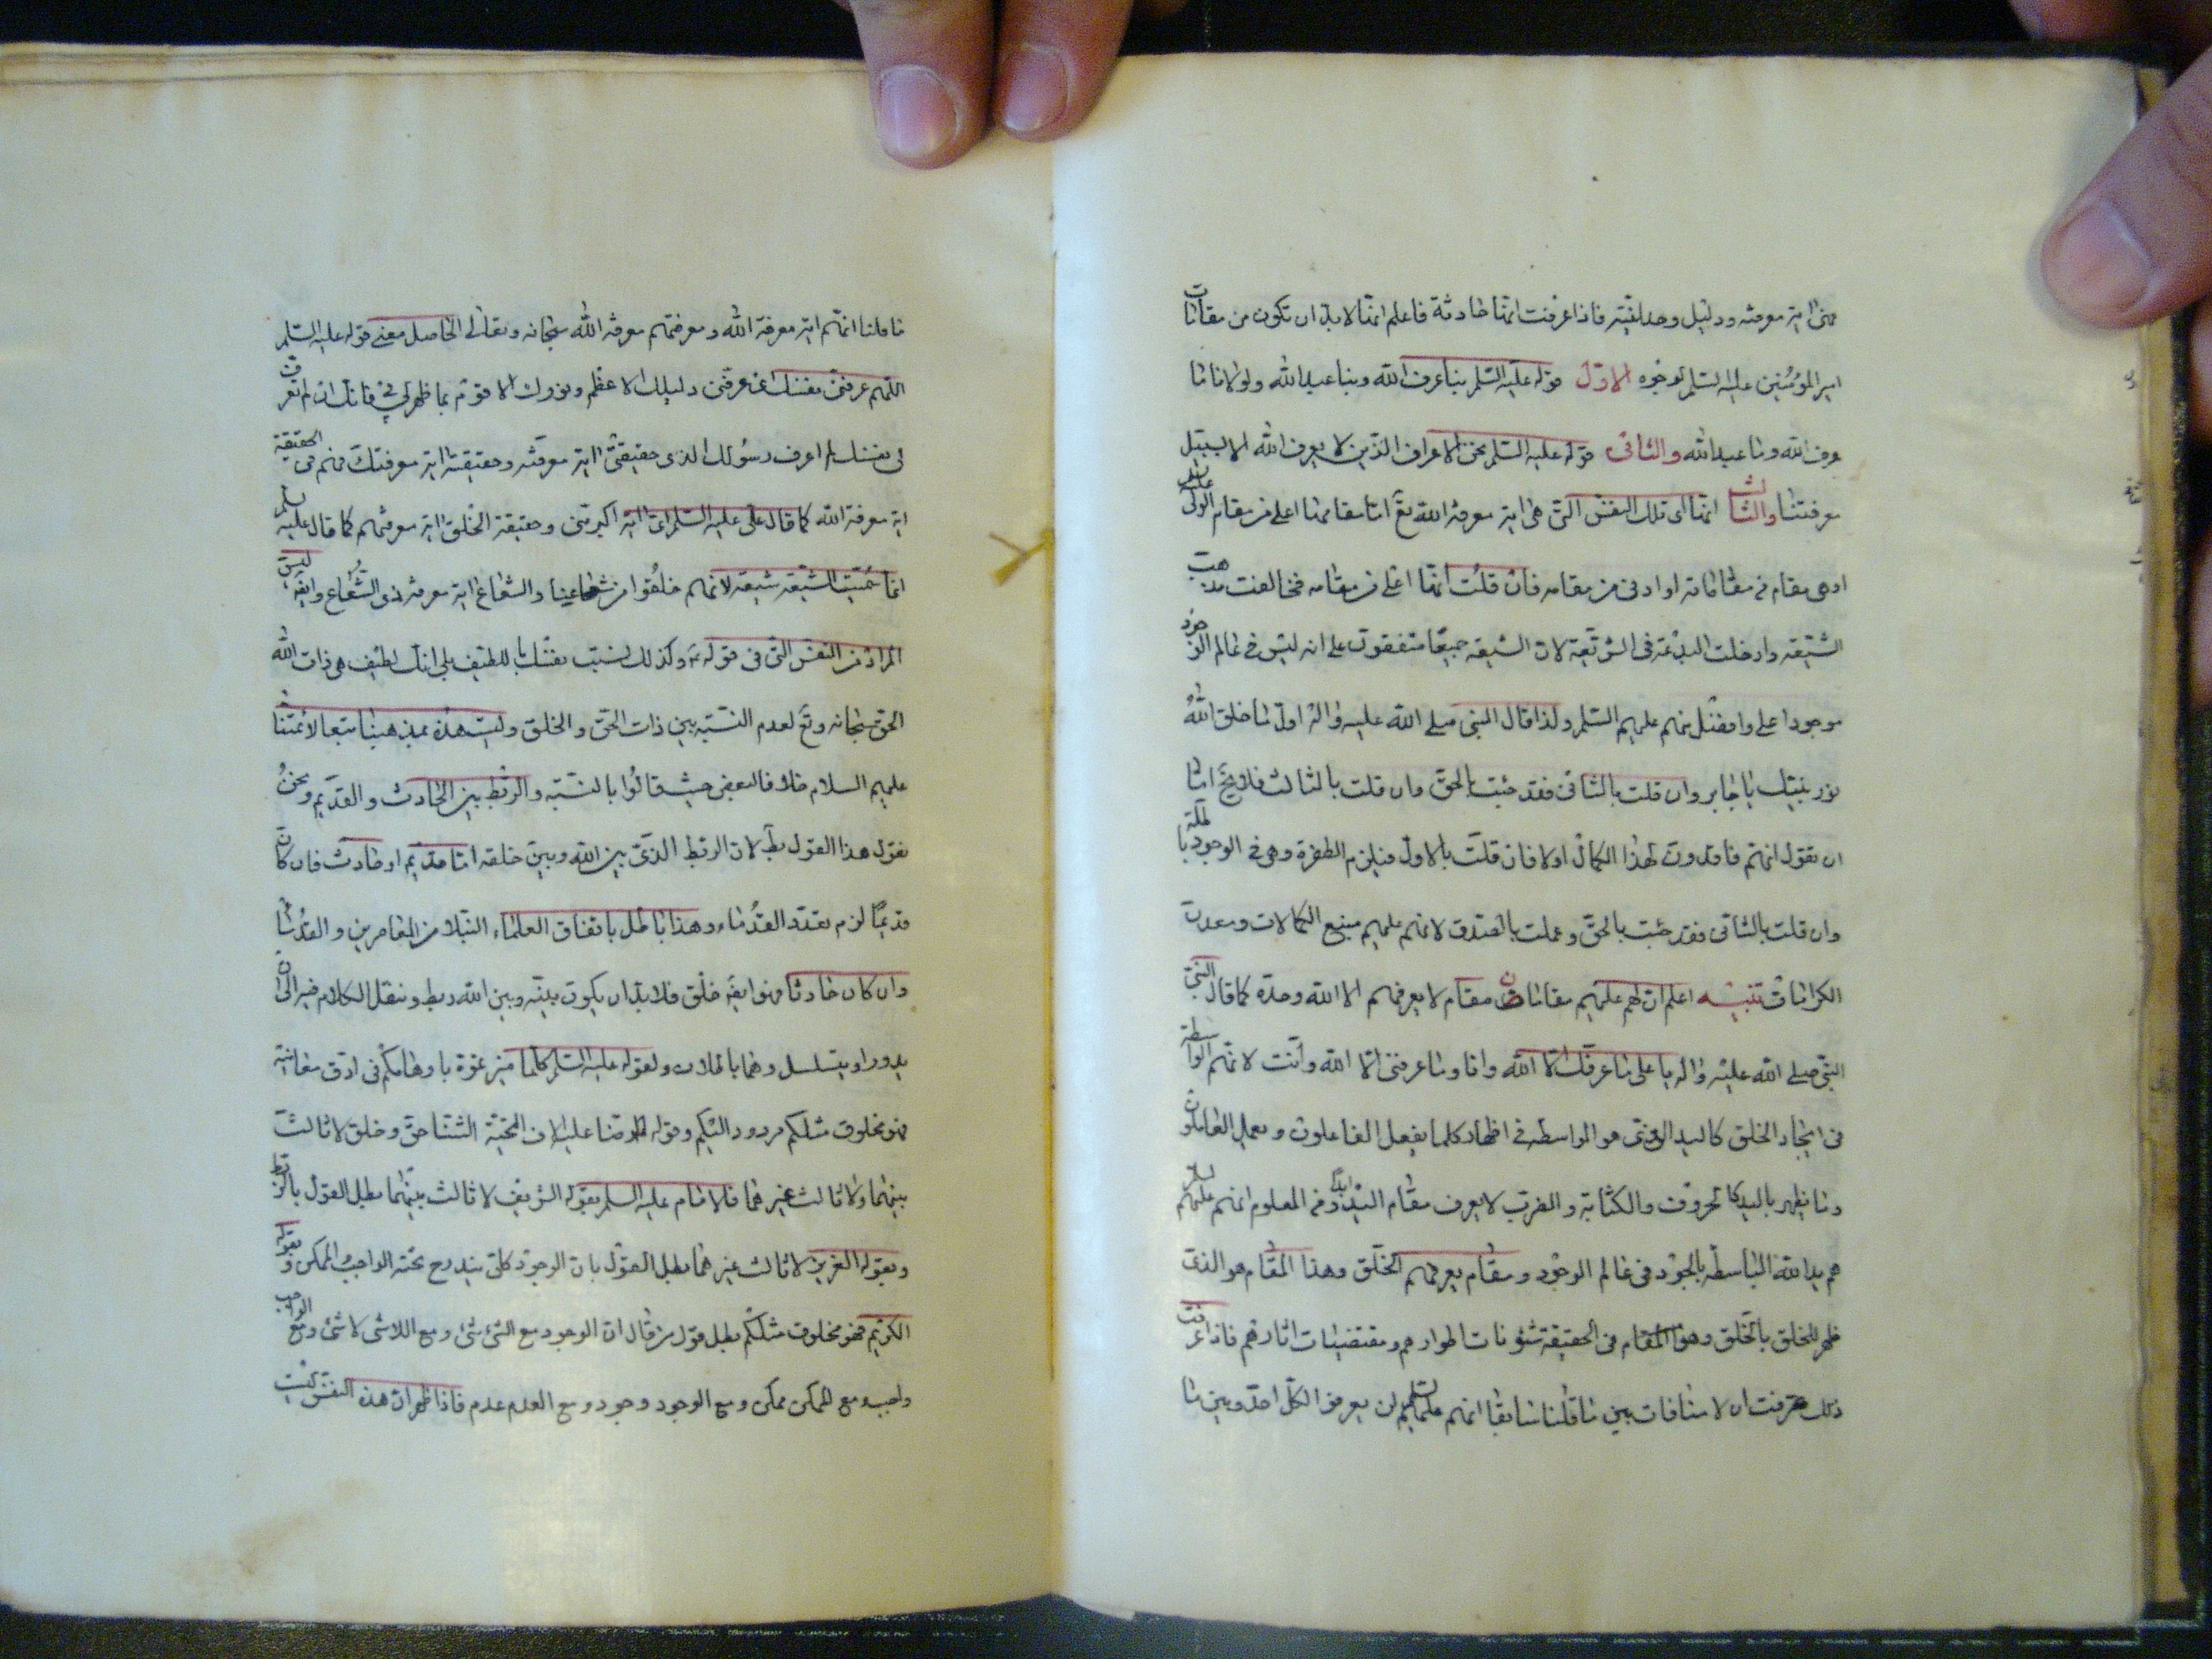 فهی ایة معرفته ودلیل وحدانیته فاذا عرفت انها حادثة فاعلم انها لابد ان تكون من مقامات
امیر المؤمنین علیه السلم لوجوه الاول قوله علیه السلم بنا عرف الله وبنا عبد الله ولولانا ما
عرف الله وما عبد الله والثانی قوله علیه السلم نحن الاعراف الذین لا یعرف الله الا بسبیل
معرفتنا والثالث انها ای تلك النفس التی هی ایة معرفة الله تع اما مقامها اعلی من مقام الولی علیه السلم
او هی مقام فی مقاماته او ادنی من مقامه فان قلت انها اعلی من مقامه فخالفت مذهب
الشیعه وادخلت البدعة فی الشریعة لان الشیعه جمیعا متفقون علی انه لیس فی عالم الوجود
موجودا اعلی وافضل منهم علیهم السلم ولذا قال النبی صلی الله علیه واله اول ما خلق الله
نور نبیك یا جابر وان قلت بالثانی فقد جئت بالحق وان قلت بالثالث فلا یخ اما
ان تقول انهم فاقدون لهذا الكمال اولا فان قلت بالاول فیلزم الطفرة وهی فی الوجود باطلة
وان قلت بالثانی فقد جئت بالحق وعملت بالصدق لانهم علیهم منبع الكمالات ومعدن
الكرامات تنبیه اعلم ان لهم علیهم مقامان مقام لا یعرفهم الا الله وحده كما قال النبی
النبی صلی الله علیه واله یا علی ما عرفك الا الله وانا وما عرفنی الا الله وانت لانهم الواسطة
فی ایجاد الخلق كالید التی هو الواسطه فی اظهار كلما یفعل الفاعلون ویعمل العاملون
وما یظهر بالید كالحروف والكتابة والضرب لا یعرف مقام الید ابدا ومن المعلوم انهم علیهم السلم
هم ید الله الباسطه بالجود فی عالم الوجود ومقام یعرفهم الخلق وهذا المقام هو الذی
ظهر للخلق بالخلق وهو المقام فی الحقیقة شئونات اطوارهم ومقتضیات اثارهم فاذا عرفت
ذلك عرفت ان لا منافات بین ما قلنا سابقا انهم علیهم السلم لن یعرف الكل احد وبین ما
ما قلنا انهم ایة معرفة الله ومعرفتهم معرفة الله سبحانه وتعالی الحاصل معنی قوله علیه السلم
اللهم عرفنی نفسك ای عرفنی دلیلك الاعظم ونورك الاقوم بما ظهر لی فی فانك ان لم تعرفنی
لی نفسك لم اعرف رسولك الذی حقیقتی ایة معرفته وحقیقته ایة معرفتك فهم فی الحقیقة
ایة معرفة الله كما قال علی علیه السلم ای ایة اكبر منی وحقیقة الخلق ایة معرفتهم كما قال علیه السلم
انما سمیت الشیعه شیعه لانهم خلقوا من شعاعنا والشعاع ایة معرفة ذی الشعاع وایضا لیس
المراد من النفس التی فی قوله ع وكذلك لیست نفسك باللطیف بلی انك لطیف هی ذات الله
الحق سبحانه وتع لعدم النسبة بین ذات الحق والخلق ولیست هذه بمذهبنا تبعا لائمتنا
علیهم السلام خلافا لبعض حیث قالوا بالنسبة والربط بین الحادث والقدیم ونحن
نقول هذا القول بط لان الربط الذی بین الله وبین خلقه اما قدیم او حادث فان كان
قدیما لزم تعدد القدماء وهذا باطل باتفاق العلماء النبلا من المعاصرین والقدما
وان كان حادثا فهو ایضا خلق فلابد ان یكون بینه وبین الله ربط وننقل الكلام فیه الی ان
یدور او یتسلسل وهما باطلان ولقوله علیه السلم كلما میزتموه باوهامكم فی ادق معانیه
فهو مخلوق مثلكم مردود الیكم وقوله الرضا علیه الاف التحیة الثنا حق وخلق لا ثالث
بینهما ولا ثالث غیرهما فالامام علیه السلم بقوله الشریف لا ثالث بینهما بطل القول بالربط
وبقوله العزیز لا ثالث غیرهما بطل القول بان الوجود كلی یندرج تحته الواجب والممكن وبقوله
الكریم فهو مخلوق مثلكم بطل قول من قال ان الوجود مع الشی شئ ومع اللاشی لا شئ ومع الواجب
واجب ومع الممكن ممكن ومع الوجود وجود ومع العدم عدم فاذا ظهر ان هذه النفس لیست